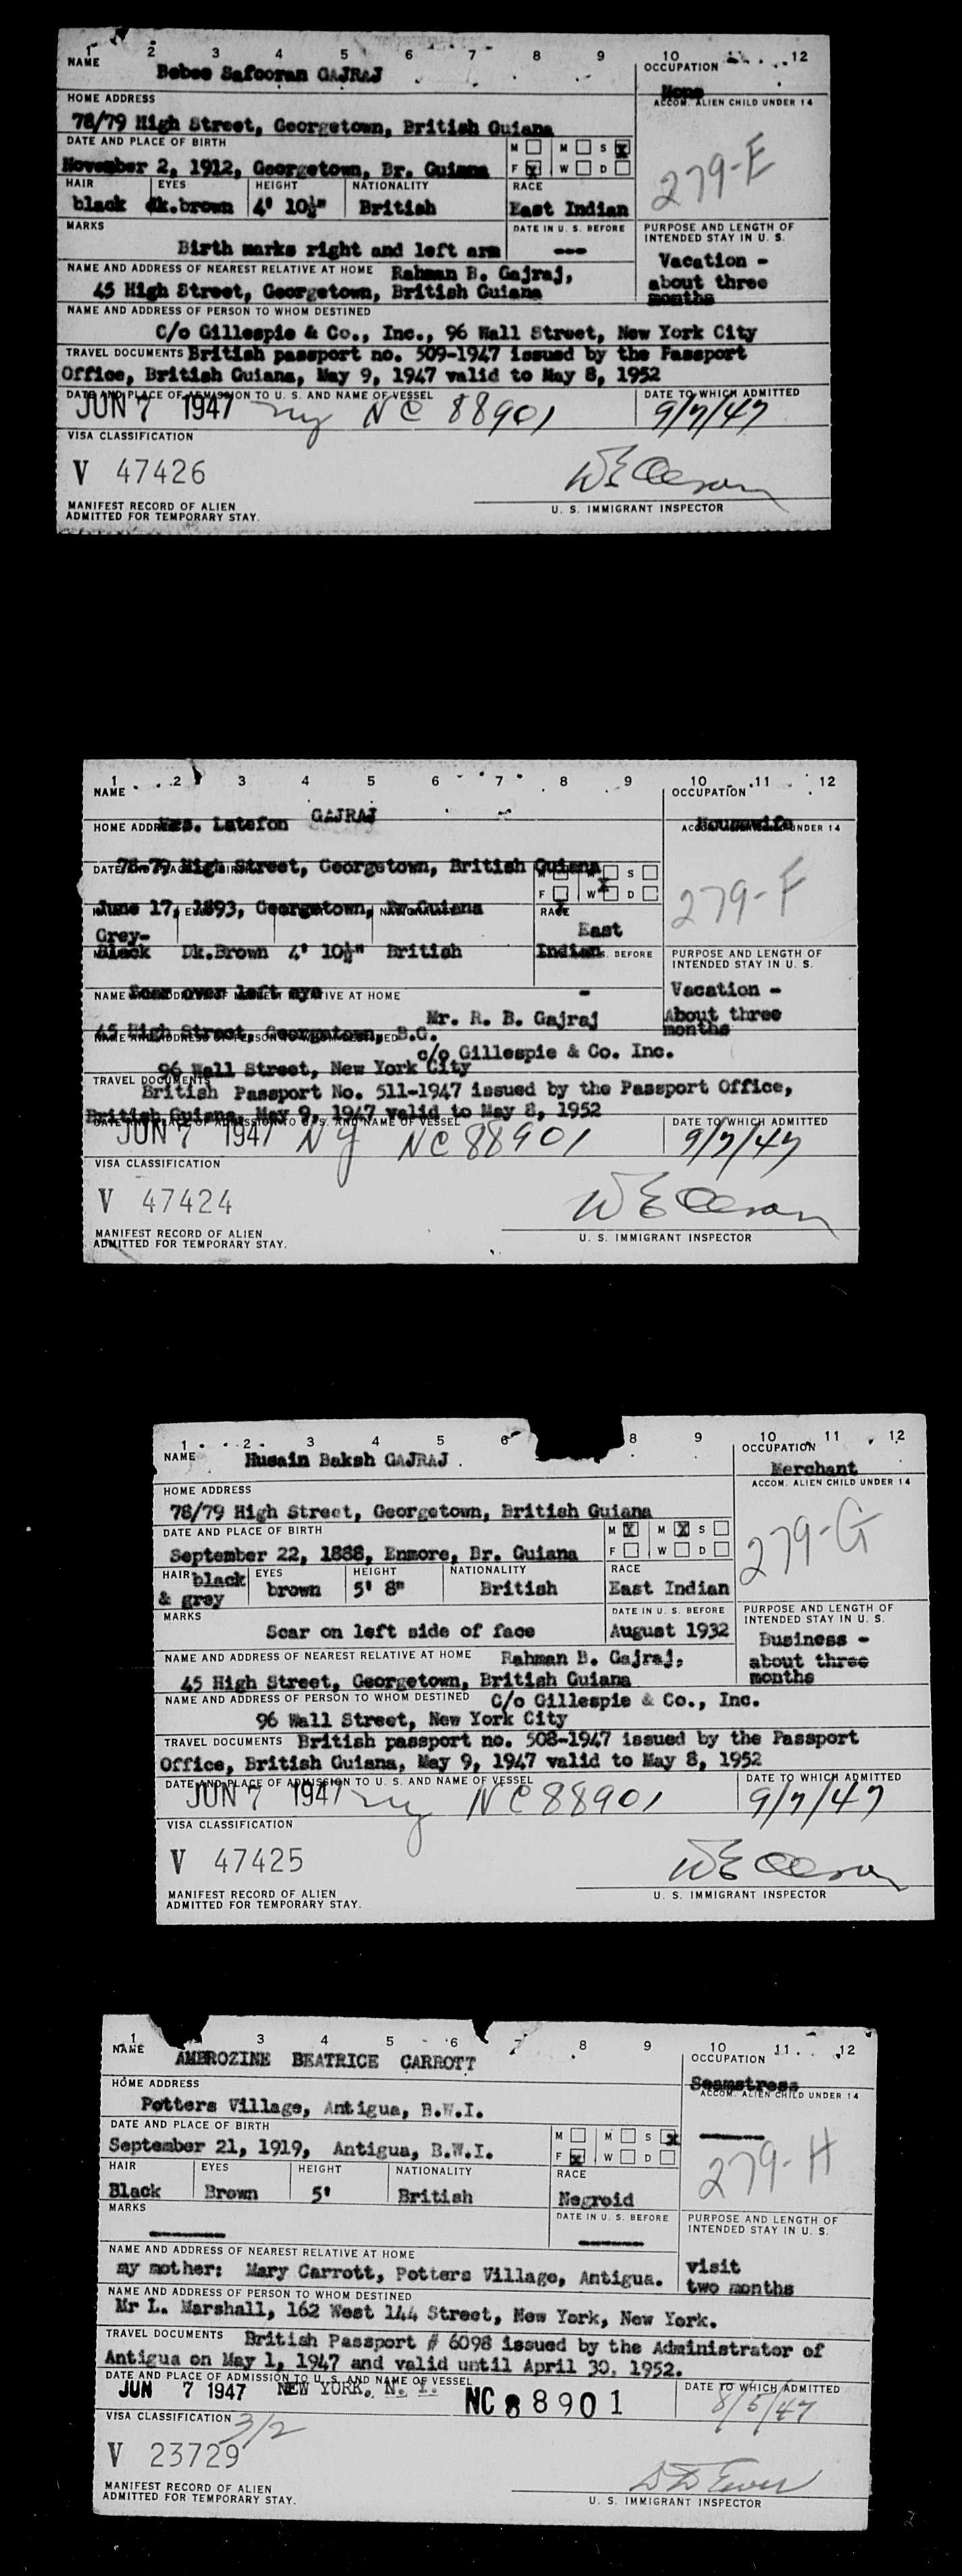 1 2 3 4 5 6 7 8 9 10 11 12
NAME
Bebee Safooran GAJRAJ
OCCUPATION
None
HOME ADDRESS
ACCOM. ALIEN CHILD UNDER 14
78/79 High Street, Georgetown, British Guiana
279-E
DATE AND PLACE OF BIRTH
M M S X
November 2, 1912, Georgetown, Br. Guiana
F X W D
HAIR EYES HEIGHT NATIONALITY RACE
black dk.brown 4' 10½" British East Indian
MARKS
DATE IN U. S. BEFORE
PURPOSE AND LENGTH OF
INTENDED STAY IN U. S.
Birth marks right and left arm ---
Vacation -
about three
months
NAME AND ADDRESS OF NEAREST RELATIVE AT HOME Rahman B. Gajraj,
45 High Street, Georgetown, British Guiana
NAME AND ADDRESS OF PERSON TO WHOM DESTINED
C/o Gillespie & Co., Inc., 96 Wall Street, New York City
TRAVEL DOCUMENTS British passport no. 509-1947 issued by the Passport
Office, British Guiana, May 9, 1947 valid to May 8, 1952
DATE AND PLACE OF ADMISSION TO U. S. AND NAME OF VESSEL
DATE TO WHICH ADMITTED
JUN 7 1947 ny NC 88901 9/7/47
VISA CLASSIFICATION
V 47426
WE Olson
MANIFEST RECORD OF ALIEN
ADMITTED FOR TEMPORARY STAY.
U. S. IMMIGRANT INSPECTOR
1 2 3 4 5 6 7 8 9 10 11 12
NAME
OCCUPATION
Mrs. Latefon GAJRAJ
Housewife
HOME ADDRESS
ACCOM. ALIEN CHILD UNDER 14
78-79 High Street, Georgetown, British Guiana
279-F
DATE AND PLACE OF BIRTH
M M S
F W D
June 17, 1893, Georgetown, Br.Guiana
HAIR EYES HEIGHT NATIONALITY RACE
Grey- East
Black Dk.Brown 4' 10½" British Indian
MARKS
DATE IN U. S. BEFORE
PURPOSE AND LENGTH OF
INTENDED STAY IN U. S.
Scar over left eye -
Vacation -
About three
months
NAME AND ADDRESS OF NEAREST RELATIVE AT HOME
Mr. R. B. Gajraj
45 High Street, Georgetown, B.G.
NAME AND ADDRESS OF PERSON TO WHOM DESTINED
c/o Gillespie & Co. Inc.
96 Wall Street, New York City
TRAVEL DOCUMENTS
British Passport No. 511-1947 issued by the Passport Office,
British Guiana, May 9, 1947 valid to May 8, 1952
DATE AND PLACE OF ADMISSION TO U. S. AND NAME OF VESSEL
DATE TO WHICH ADMITTED
JUN 7 1947 NY NC 88901 9/7/47
VISA CLASSIFICATION
V 47424
WE Olson
MANIFEST RECORD OF ALIEN
ADMITTED FOR TEMPORARY STAY.
U. S. IMMIGRANT INSPECTOR
1 2 3 4 5 6 8 9 10 11 12
NAME
Husain Baksh GAJRAJ
OCCUPATION
Merchant
HOME ADDRESS
ACCOM. ALIEN CHILD UNDER 14
78/79 High Street, Georgetown, British Guiana
279-G
DATE AND PLACE OF BIRTH
M X M X S
September 22, 1888, Enmore, Br. Guiana
F W D
HAIR EYES HEIGHT NATIONALITY RACE
black
& grey brown 5' 8" British East Indian
MARKS
DATE IN U. S. BEFORE
PURPOSE AND LENGTH OF
INTENDED STAY IN U. S.
Scar on left side of face August 1932
Business -
about three
months
NAME AND ADDRESS OF NEAREST RELATIVE AT HOME Rahman B. Gajraj,
45 High Street, Georgetown, British Guiana
NAME AND ADDRESS OF PERSON TO WHOM DESTINED C/o Gillespie & Co., Inc.
96 Wall Street, New York City
TRAVEL DOCUMENTS British passport no. 508-1947 issued by the Passport
Office, British Guiana, May 9, 1947 valid to May 8, 1952
DATE AND PLACE OF ADMISSION TO U. S. AND NAME OF VESSEL
DATE TO WHICH ADMITTED
JUN 7 1947 ny NC 88901 9/7/47
VISA CLASSIFICATION
V 47425
WE Olson
MANIFEST RECORD OF ALIEN
ADMITTED FOR TEMPORARY STAY.
U. S. IMMIGRANT INSPECTOR
1 3 4 5 6 7 8 9 10 11 12
NAME
AMBROZINE BEATRICE CARROTT
OCCUPATION
Seamstress
HOME ADDRESS
ACCOM. ALIEN CHILD UNDER 14
Potters Village, Antigua, B.W.I.
279-H
DATE AND PLACE OF BIRTH
M M S X
September 21, 1919, Antigua, B.W.I.
F X W D
HAIR EYES HEIGHT NATIONALITY RACE
Black Brown 5' British Negroid
MARKS
DATE IN U. S. BEFORE
PURPOSE AND LENGTH OF
INTENDED STAY IN U. S.
visit
two months
NAME AND ADDRESS OF NEAREST RELATIVE AT HOME
my mother: Mary Carrott, Potters Village, Antigua.
NAME AND ADDRESS OF PERSON TO WHOM DESTINED
Mr L. Marshall, 162 West 144 Street, New York, New York.
TRAVEL DOCUMENTS British Passport # 6098 issued by the Administrator of
Antigua on May 1, 1947 and valid until April 30, 1952.
DATE AND PLACE OF ADMISSION TO U. S. AND NAME OF VESSEL
DATE TO WHICH ADMITTED
JUN 7 1947 NEW YORK, N. Y. NC 88901 8/6/47
VISA CLASSIFICATION 3/2
V 23729
MANIFEST RECORD OF ALIEN
ADMITTED FOR TEMPORARY STAY.
U. S. IMMIGRANT INSPECTOR